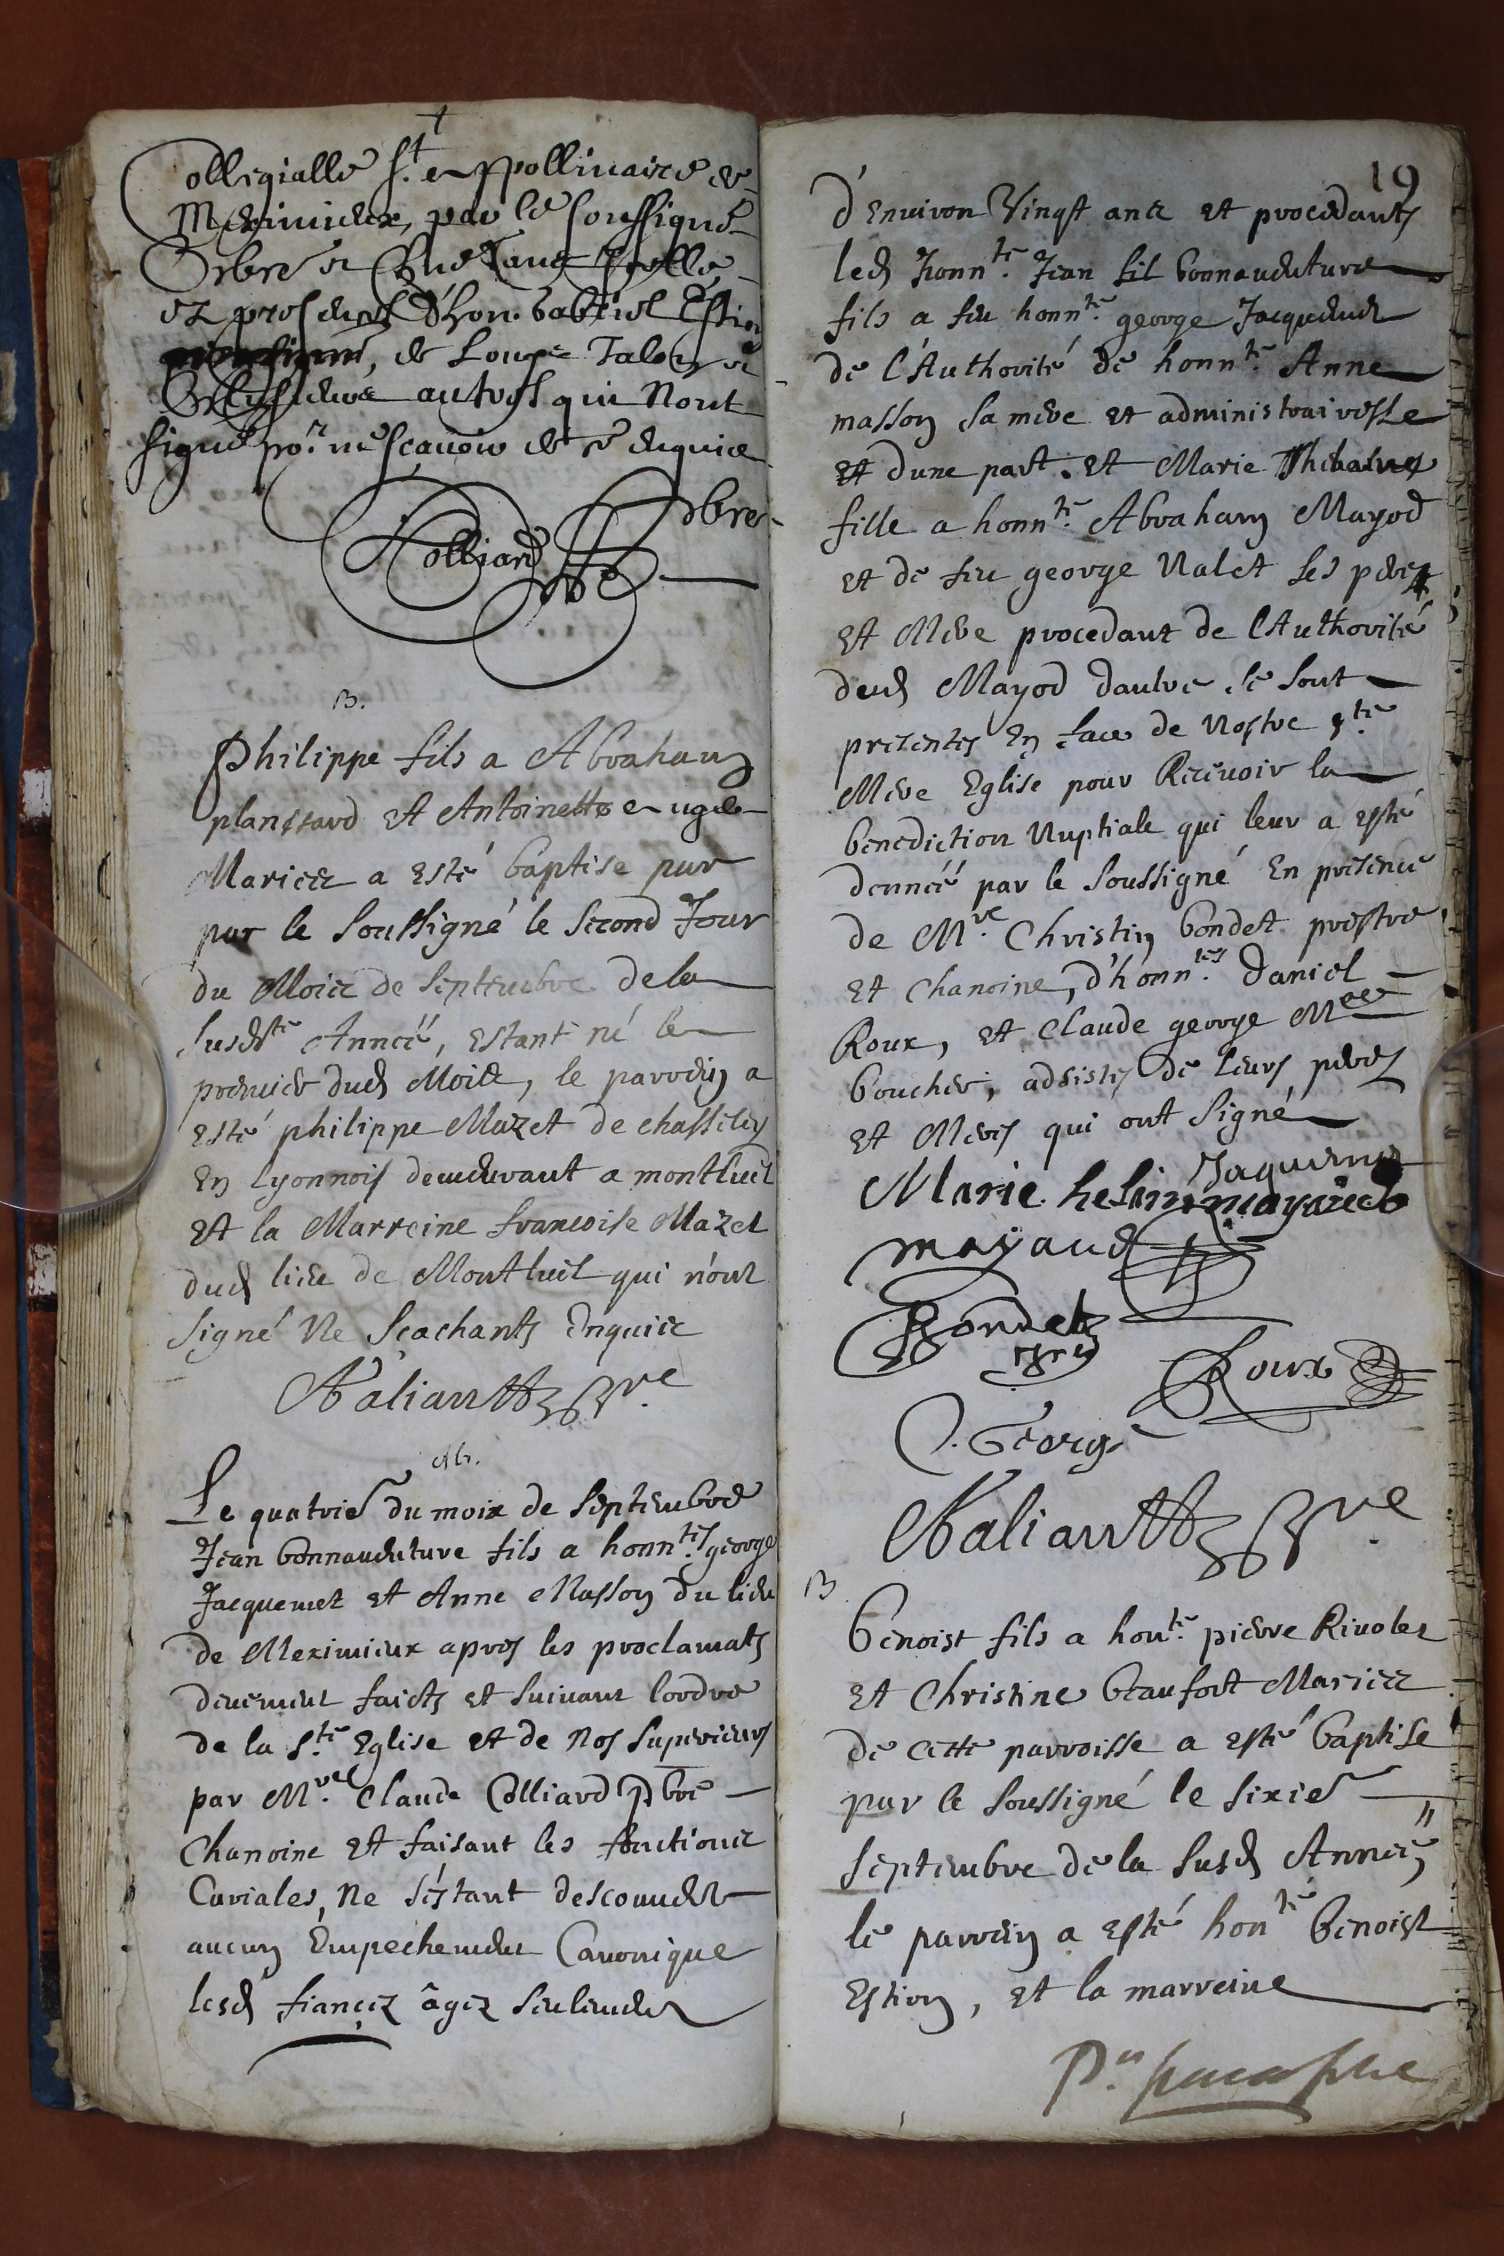 Collegialle St Appollinaire de
Meximieux, par le soussigné
et presence d'hon. Gabriel Estion
de Louys Talon et
plusieurs autres qui n'ont
signé po.r ne scavoir de ce enquis
Colliard pbre
B.
Philippe fils a Abraham
plançsard et Antoinette
Mariez a esté baptise par
par le soussigné le second Jour
du Moiz de Septembre de la
susd.te Année, estant né le
premier dud Moiz, le parrein a
esté philippe Mazet de chasseley
En Lyonnois demeurant a montluel
et la Marreine francoise Mazet
dud lieu de Montluel qui n'ont
signé Ne Scachants Enquiz
Valiantt pbre
M.
Le quatrie du moix de Septembre
Jean bonnaventure fils a honn.tes george
Jacquemet et Anne Masson du lieu
de Meximieux apres les proclamats
devement faicts et suivant lordre
de la S.te Eglise et de Nos Superieurs
par M.re Claude Colliard pbre
Chanoine et faisant les fonctionz
Curiales, Ne s'estant descouvert
aucun Empechement Canonique
lesd fiancez âgez seulement
19
d'Environ Vingt anz et procedants
led honn.te Jean bonnaventure
fils a feu honn.te george Jacquemet
de l'Authorité de honn.te Anne
masson sa mere et administrairesse
et dune part. et Marie
fille a honn.te Abraham Mayod
et de feu george Nalet ses pere
et Mere procedant de l'Authorité
dud Mayod daultre se sont
presentes En face de Nostre s.te
Mere Eglise pour Recevoir la
benediction Nuptiale qui leur a esté
donnéé par le Soussigné En presence
de M.re Christin bondet prestre
et Chanoine, d'honn.tes daniel
Roux, et Claude george M
boucher, adsistes de leurs peres
et Meres qui ont signé
Jaquemet
Marie
mayaud
Bondet
Roux
C. George
Valiantt pbre
B
Benoist fils a hon.te pierre Rivolet
et Christine beaufort Mariez
de cette parroisse a esté baptise
par le soussigné le sixie
Septembre de la susd Année,
le parrein a esté hon.te benoist
Estion, et la marreine
P.n paraphe